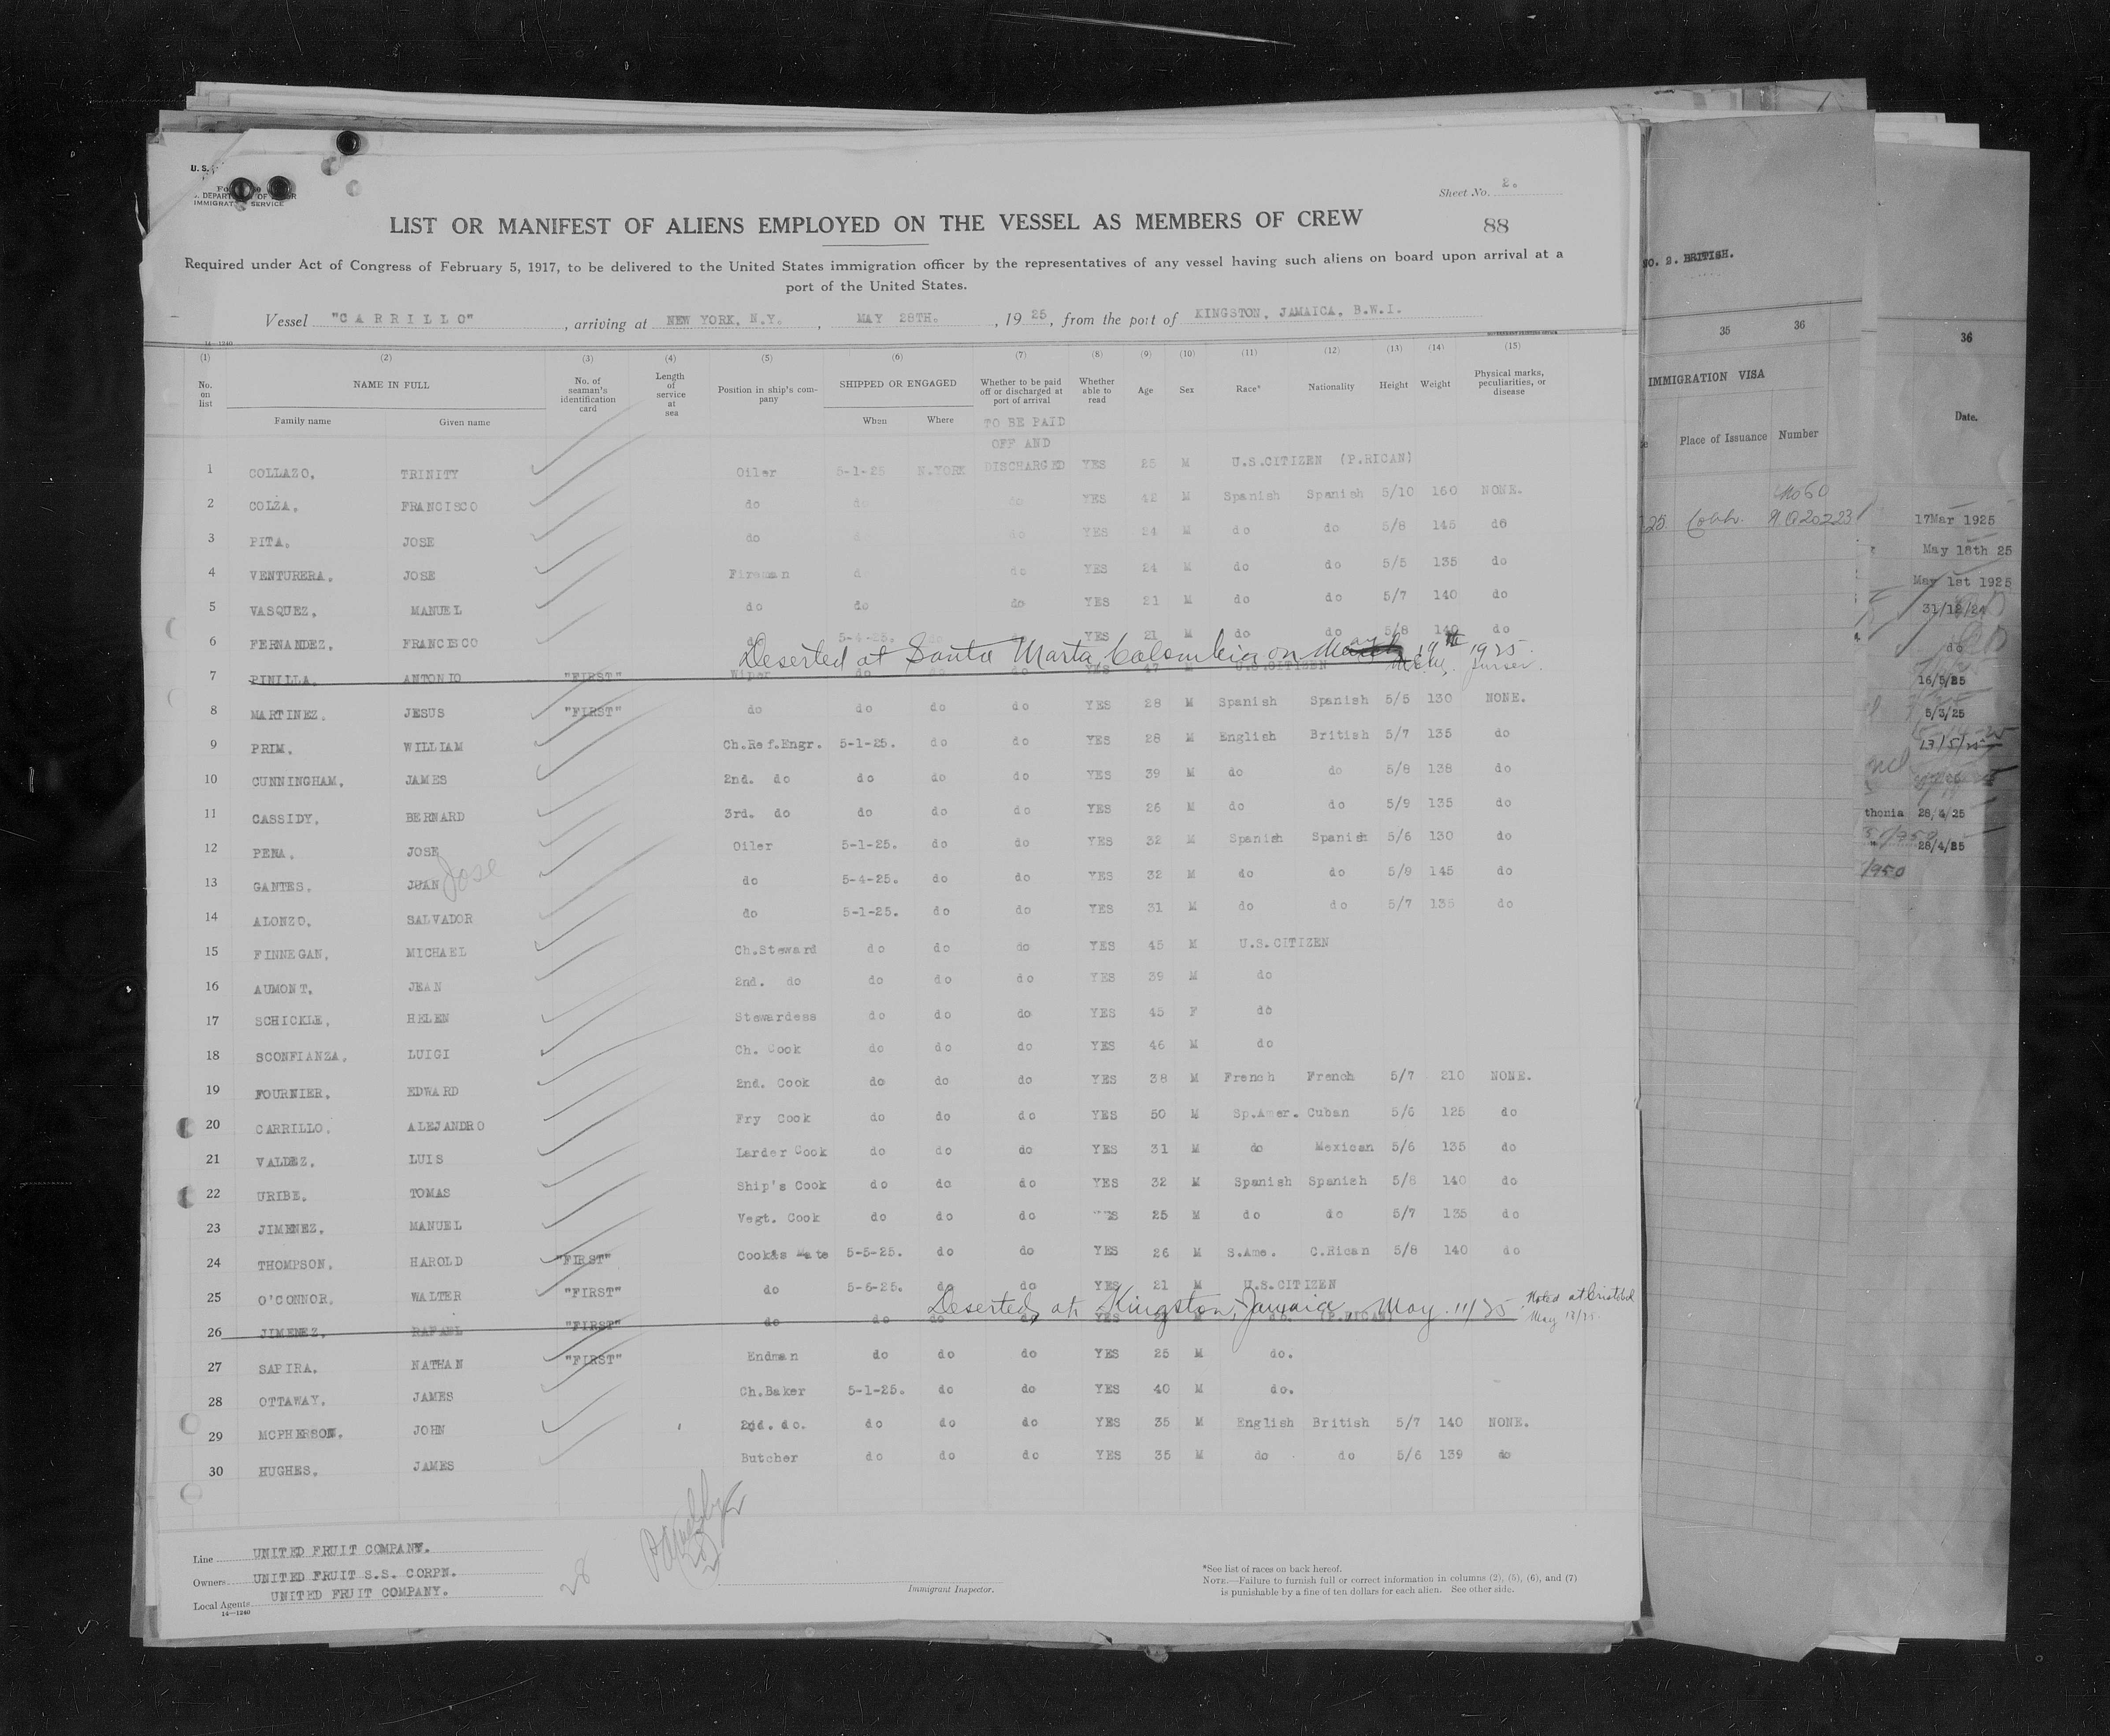 U. S.
DEPARTMENT OF LABOR
IMMIGRATION SERVICE
Sheet No. 2.
LIST OR MANIFEST OF ALIENS EMPLOYED ON THE VESSEL AS MEMBERS OF CREW
88
Required under Act of Congress of February 5, 1917, to be delivered to the United States immigration officer by the representatives of any vessel having such aliens on board upon arrival at a
port of the United States.
Vessel "CARRILLO", arriving at NEW YORK, N.Y., MAY 28TH., 1925, from the port of KINGSTON, JAMAICA, B.W.I.
14—1240
(1) (2) (3) (4) (5) (6) (7) (8) (9) (10) (11) (12) (13) (14) (15)
No. on list NAME IN FULL No. of seaman's identification card Length of service at sea Position in ship's company SHIPPED OR ENGAGED Whether to be paid off or discharged at port of arrival Whether able to read Age Sex Race* Nationality Height Weight Physical marks, peculiarities, or disease
Family name Given name When Where
TO BE PAID
OFF AND
1 COLLAZO, TRINITY Oiler 5-1-25 N.YORK DISCHARGED YES 25 M U.S.CITIZEN (P.RICAN)
2 COLZA, FRANCISCO do do do YES 42 M Spanish Spanish 5/10 160 NONE.
3 PITA, JOSE do do YES 24 M do do 5/8 145 do
4 VENTURERA, JOSE Fireman do YES 24 M do do 5/5 135 do
5 VASQUEZ, MANUEL do do do YES 21 M do do 5/7 140 do
6 FERNANDEZ, FRANCISCO do 5-4-25. YES 21 M do do 5/8 140 do
Deserted at Santa Marta Colombia on May 19th 1925.
7 PINILLA, ANTONIO "FIRST" Wiper do do do YES 47 M U.S.CITIZEN Purser.
8 MARTINEZ, JESUS "FIRST" do do do do YES 28 M Spanish Spanish 5/5 130 NONE.
9 PRIM, WILLIAM Ch.Ref.Engr. 5-1-25. do do YES 28 M English British 5/7 135 do
10 CUNNINGHAM, JAMES 2nd. do do do do YES 39 M do do 5/8 138 do
11 CASSIDY, BERNARD 3rd. do do do do YES 26 M do do 5/9 135 do
12 PENA, JOSE Oiler 5-1-25. do do YES 32 M Spanish Spanish 5/6 130 do
13 GANTES, JUAN Jose do 5-4-25. do do YES 32 M do do 5/9 145 do
14 ALONZO, SALVADOR do 5-1-25. do do YES 31 M do do 5/7 135 do
15 FINNEGAN, MICHAEL Ch.Steward do do do YES 45 M U.S.CITIZEN
16 AUMONT, JEAN 2nd. do do do do YES 39 M do
17 SCHICKLE, HELEN Stewardess do do do YES 45 F do
18 SCONFIANZA, LUIGI Ch. Cook do do do YES 46 M do
19 FOURNIER, EDWARD 2nd. Cook do do do YES 38 M French French 5/7 210 NONE.
20 CARRILLO, ALEJANDRO Fry Cook do do do YES 50 M Sp.Amer. Cuban 5/6 125 do
21 VALDEZ, LUIS Larder Cook do do do YES 31 M do Mexican 5/6 135 do
22 URIBE, TOMAS Ship's Cook do do do YES 32 M Spanish Spanish 5/8 140 do
23 JIMENEZ, MANUEL Vegt. Cook do do do YES 25 M do do 5/7 135 do
24 THOMPSON, HAROLD "FIRST" Cook&s Mate 5-5-25. do do YES 26 M S.Ame. C.Rican 5/8 140 do
25 O'CONNOR, WALTER "FIRST" do 5-6-25. do do YES 21 M U.S.CITIZEN
Deserted at Kingston, Jamaica, May. 11/25 Noted at Cristobal May 13/25.
26 JIMENEZ, RAFAEL "FIRST" do do do do YES M do. (P.RICAN)
27 SAPIRA, NATHAN "FIRST" Endman do do do YES 25 M do.
28 OTTAWAY, JAMES Ch.Baker 5-1-25. do do YES 40 M do.
29 MCPHERSON, JOHN 2nd. do. do do do YES 35 M English British 5/7 140 NONE.
30 HUGHES, JAMES Butcher do do do YES 35 M do do 5/6 139 do
Line UNITED FRUIT COMPANY.
Owners UNITED FRUIT S.S. CORPN.
Local Agents UNITED FRUIT COMPANY.
14—1240
28
Immigrant Inspector.
*See list of races on back hereof.
NOTE.—Failure to furnish full or correct information in columns (2), (5), (6), and (7)
is punishable by a fine of ten dollars for each alien. See other side.
NO. 2. BRITISH.
35 36
IMMIGRATION VISA
Place of Issuance Number
25.
36
Date.
17Mar 1925
May 18th 25
May 1st 1925
31/12/24
do
16/5/25
5/3/25
13/5/25
thonia 28/4/25
28/4/25
1950